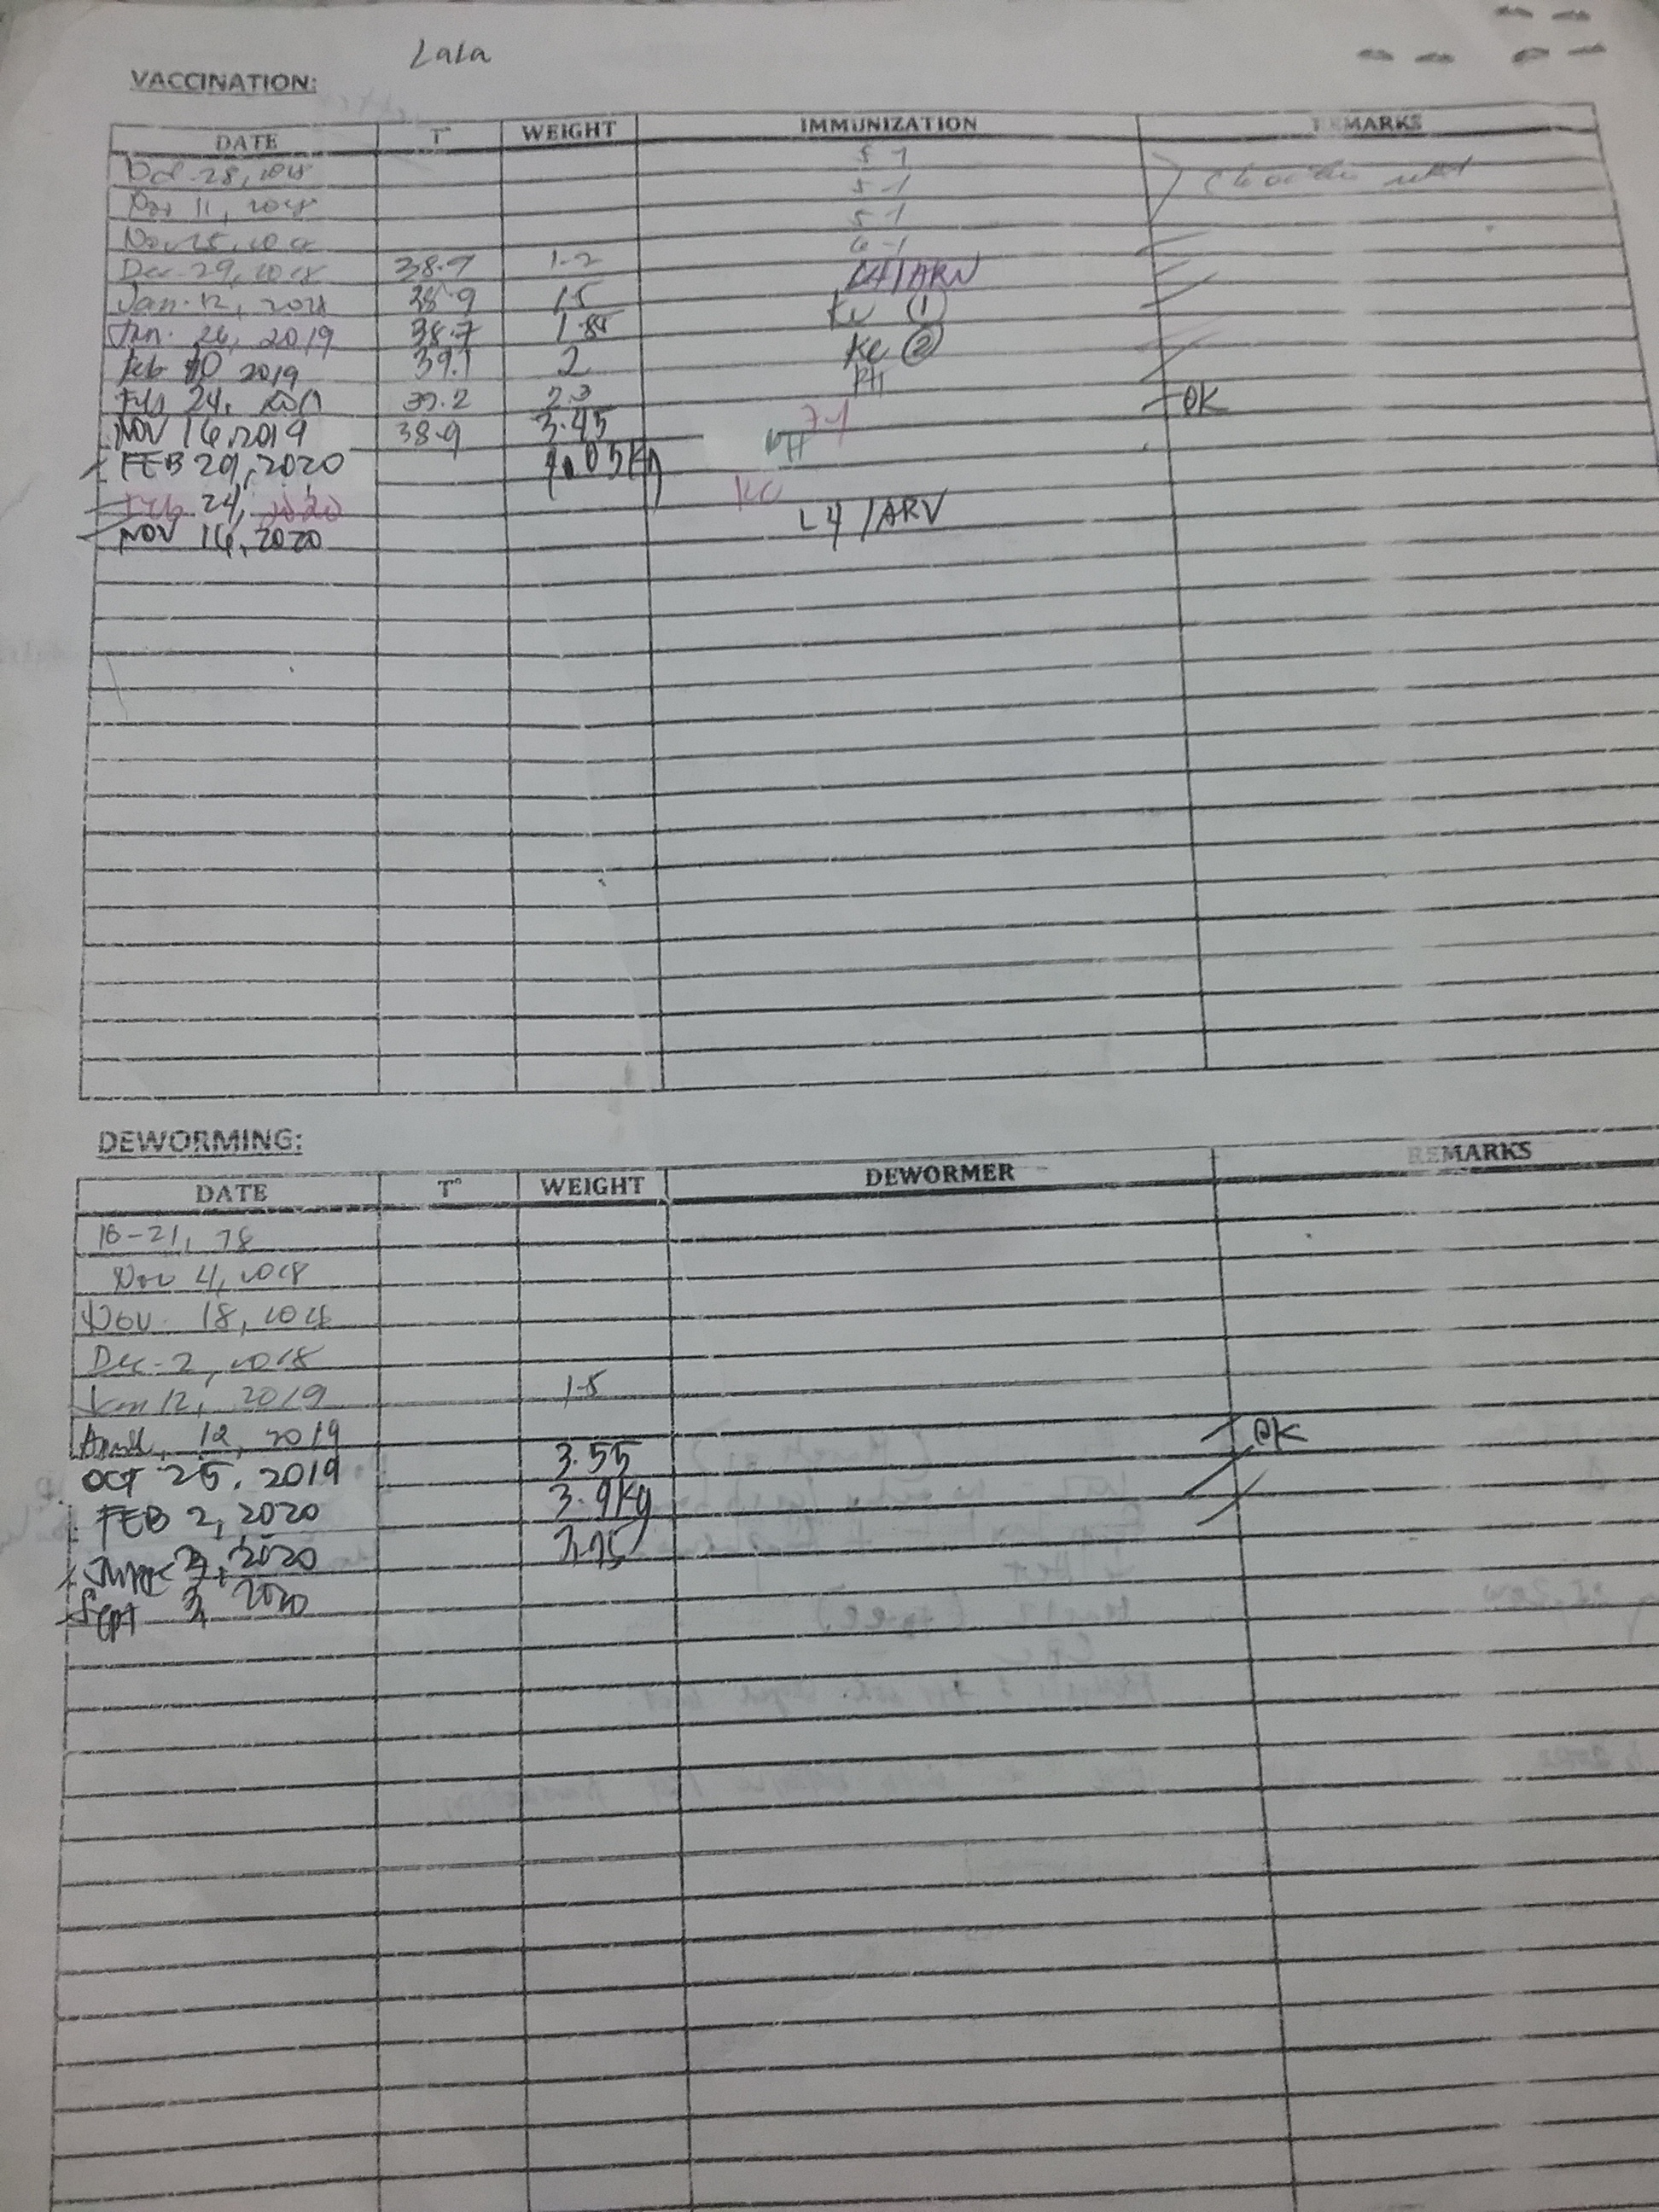 LaLa
VACCINATION:
DATE T° WEIGHT IMMUNIZATION REMARKS
28, 2018 5-1
11, 2018 5-1
Nov 25, 2018 5-1
Dec-29, 2018 38.7 1.2 6-1
Jan. 12, 2018 38.9 1.5 L4/ARV
Jan. 26, 2019 38.7 1.85 KC ①
Feb 10 2019 39.1 2 KC ②
Feb 24, 39.2 2.3 PH
NOV 16, 2019 38.9 3.45 7-1 OK
FEB 20, 2020 4.05kg PH
Feb 24, 2020 KC
NOV 16, 2020 L4 /ARV
DEWORMING:
DATE T° WEIGHT DEWORMER REMARKS
10-21, 18
Nov 4, 2018
Nov. 18, 2018
Dec-2, 2018
Jan 12, 2019 1.5
April, 12, 2019
OCT 25, 2019 3.55 OK
FEB 2, 2020 3.9kg
2020
Sept 2020